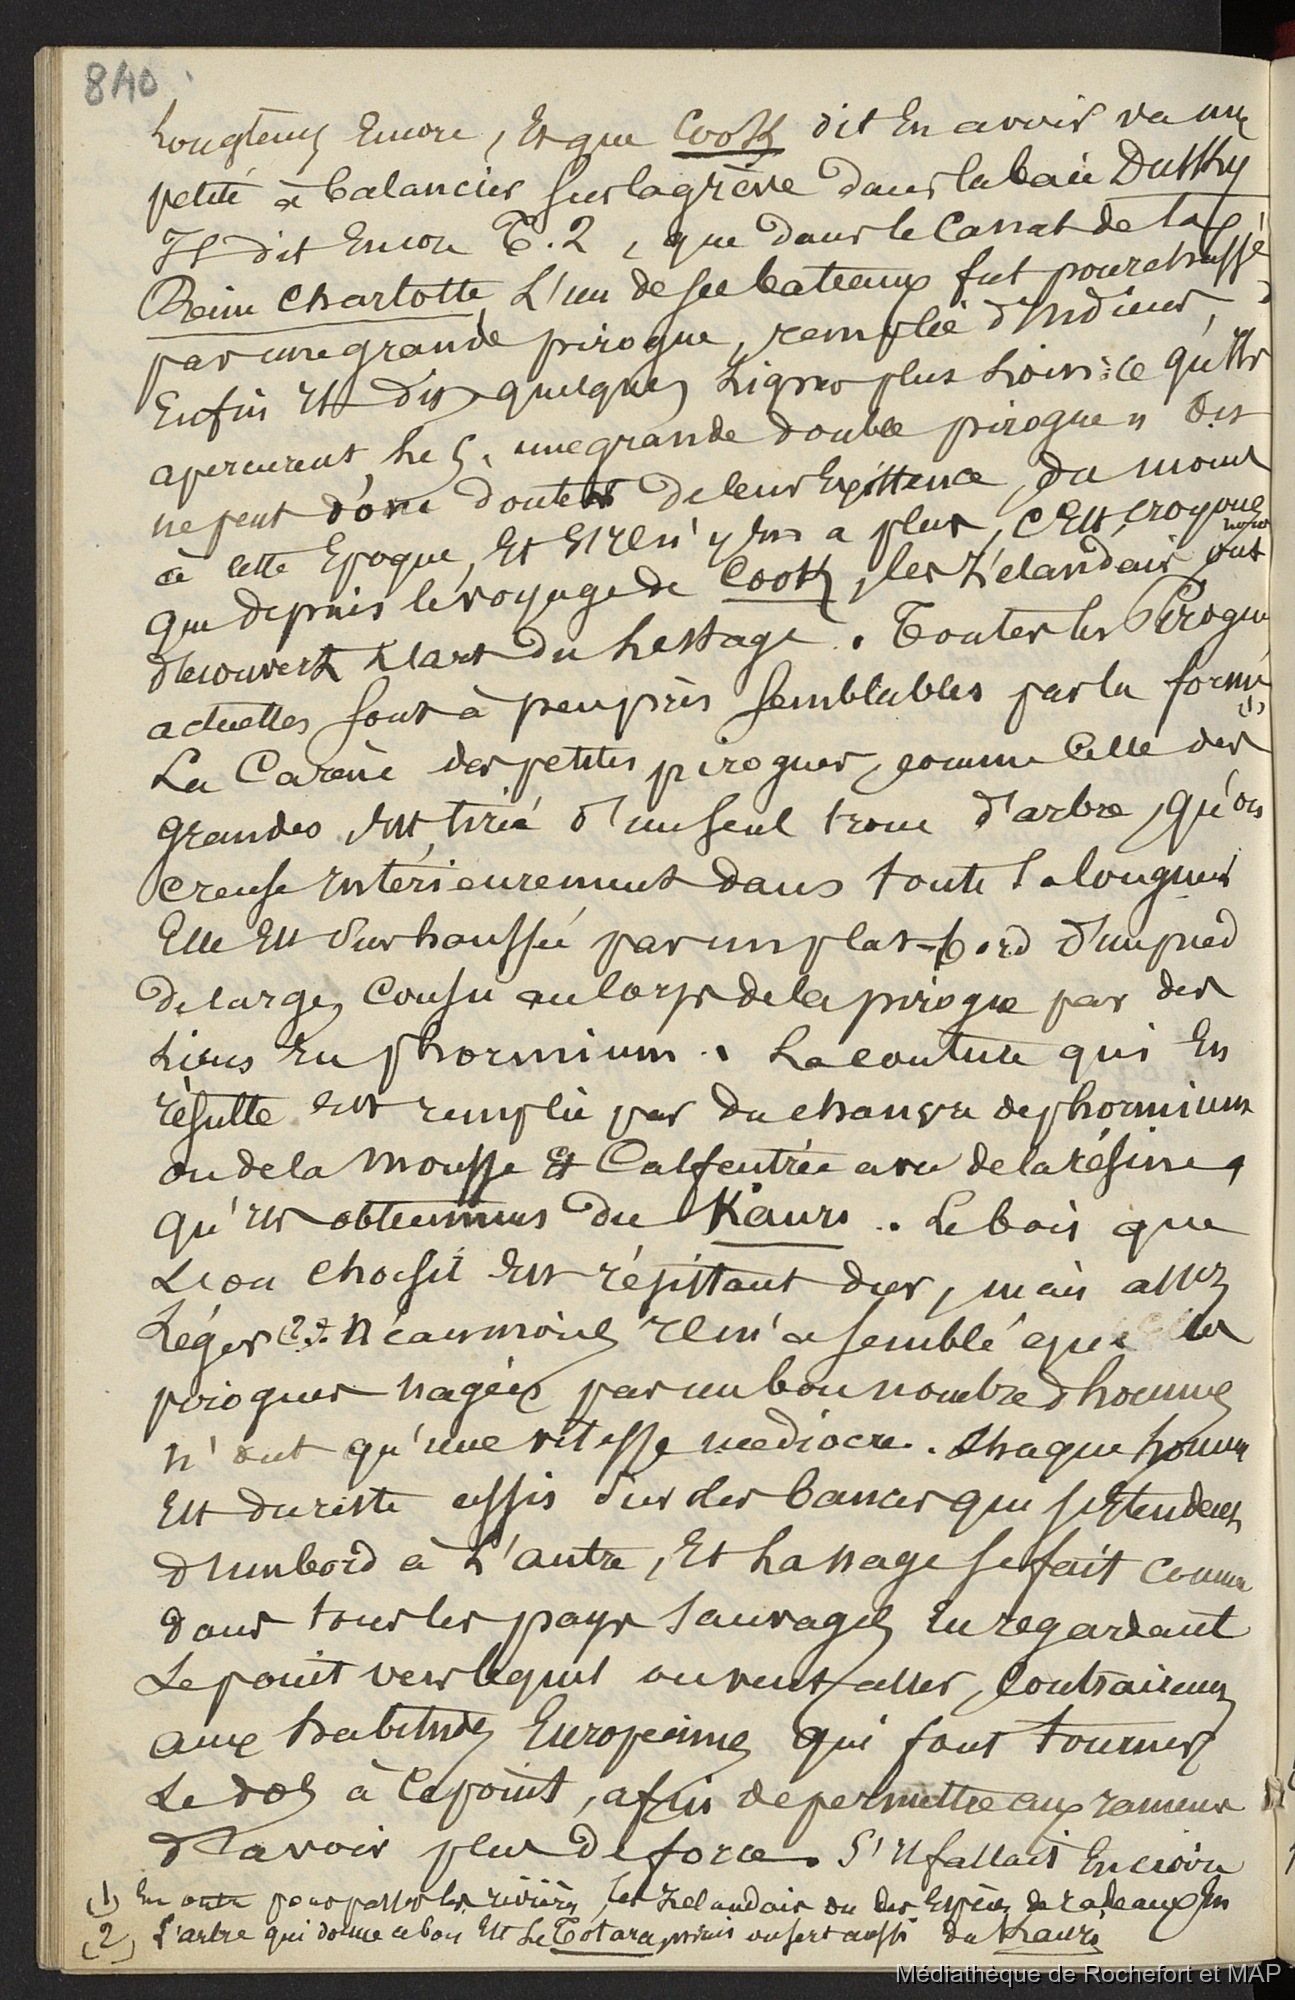 840
Longtems Encore, Et que Cook dit En avoir vu une
petite à balancier sur la grève dans la baie Dusky
Il dit Encore T. 2, que dans le Canal de la
Reine Charlotte, L'un de ses bateaux fut pourchassé
par une grande pirogue, remplie d'Indiens,
Enfin Il dit quelques Lignes plus Loin : ce qu'Ils
apercurent, He 5. une grande double pirogue " On
ne peut donc douter de leur Existence, du moins
à cette Epoque, Et s'Il n'y En a plus, c'Est, croyons nous
que depuis le voyage de Cook, les Zélandais ont
découvert L'art du Lestage. Toutes les Pirogues
actuelles sont à peu près semblables par la forme (1)
La Carène des petites pirogues, comme Celle des
grandes, Est tirée d'un seul tronc d'arbre, qu'on
creuse Intérieurement dans toute sa longueur
Elle Est surhaussée par un plat-bord d'un pied
de large, Cousu au corps de la pirogue par des
Liens En phormium. La couture qui En
résulte Est remplie par du chanvre de phormium
ou de la Mousse Et Calfeutrée avec de la résine,
qu'Ils obtiennent du Kauri. Le bois que
L'on choisit Est résistant dur, mais assez
Léger (2). Néanmoins Il m'a semblé que les
pirogues nagées par un bon nombre d'hommes
n'ont qu'une vitesse médiocre. Chaque homme
Est du reste assis sur des bancs qui s'Etendent
d'un bord à L'autre, Et La nage se fait comme
dans tous les pays sauvages En regardant
Le point vers lequel on veut aller, Contrairement
aux habitudes Européennes qui font tourner
Le dos à ce point, afin de permettre aux rameurs
d'avoir plus de force. S'Il fallait En croire
(1) En outre pour passer les rivières, les Zélandais ont des Espèces de radeaux En
(2) L'arbre qui donne ce bois Est Le Totara, mais on se sert aussi du Kauri
Médiathèque de Rochefort et MAP